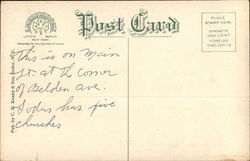 Post Card
PLACE
STAMP HERE
DOMESTIC
ONE CENT
FOREIGN
TWO CENTS
This is on Main
St. at the corner
of Belden ave.
Sodus has five
churches